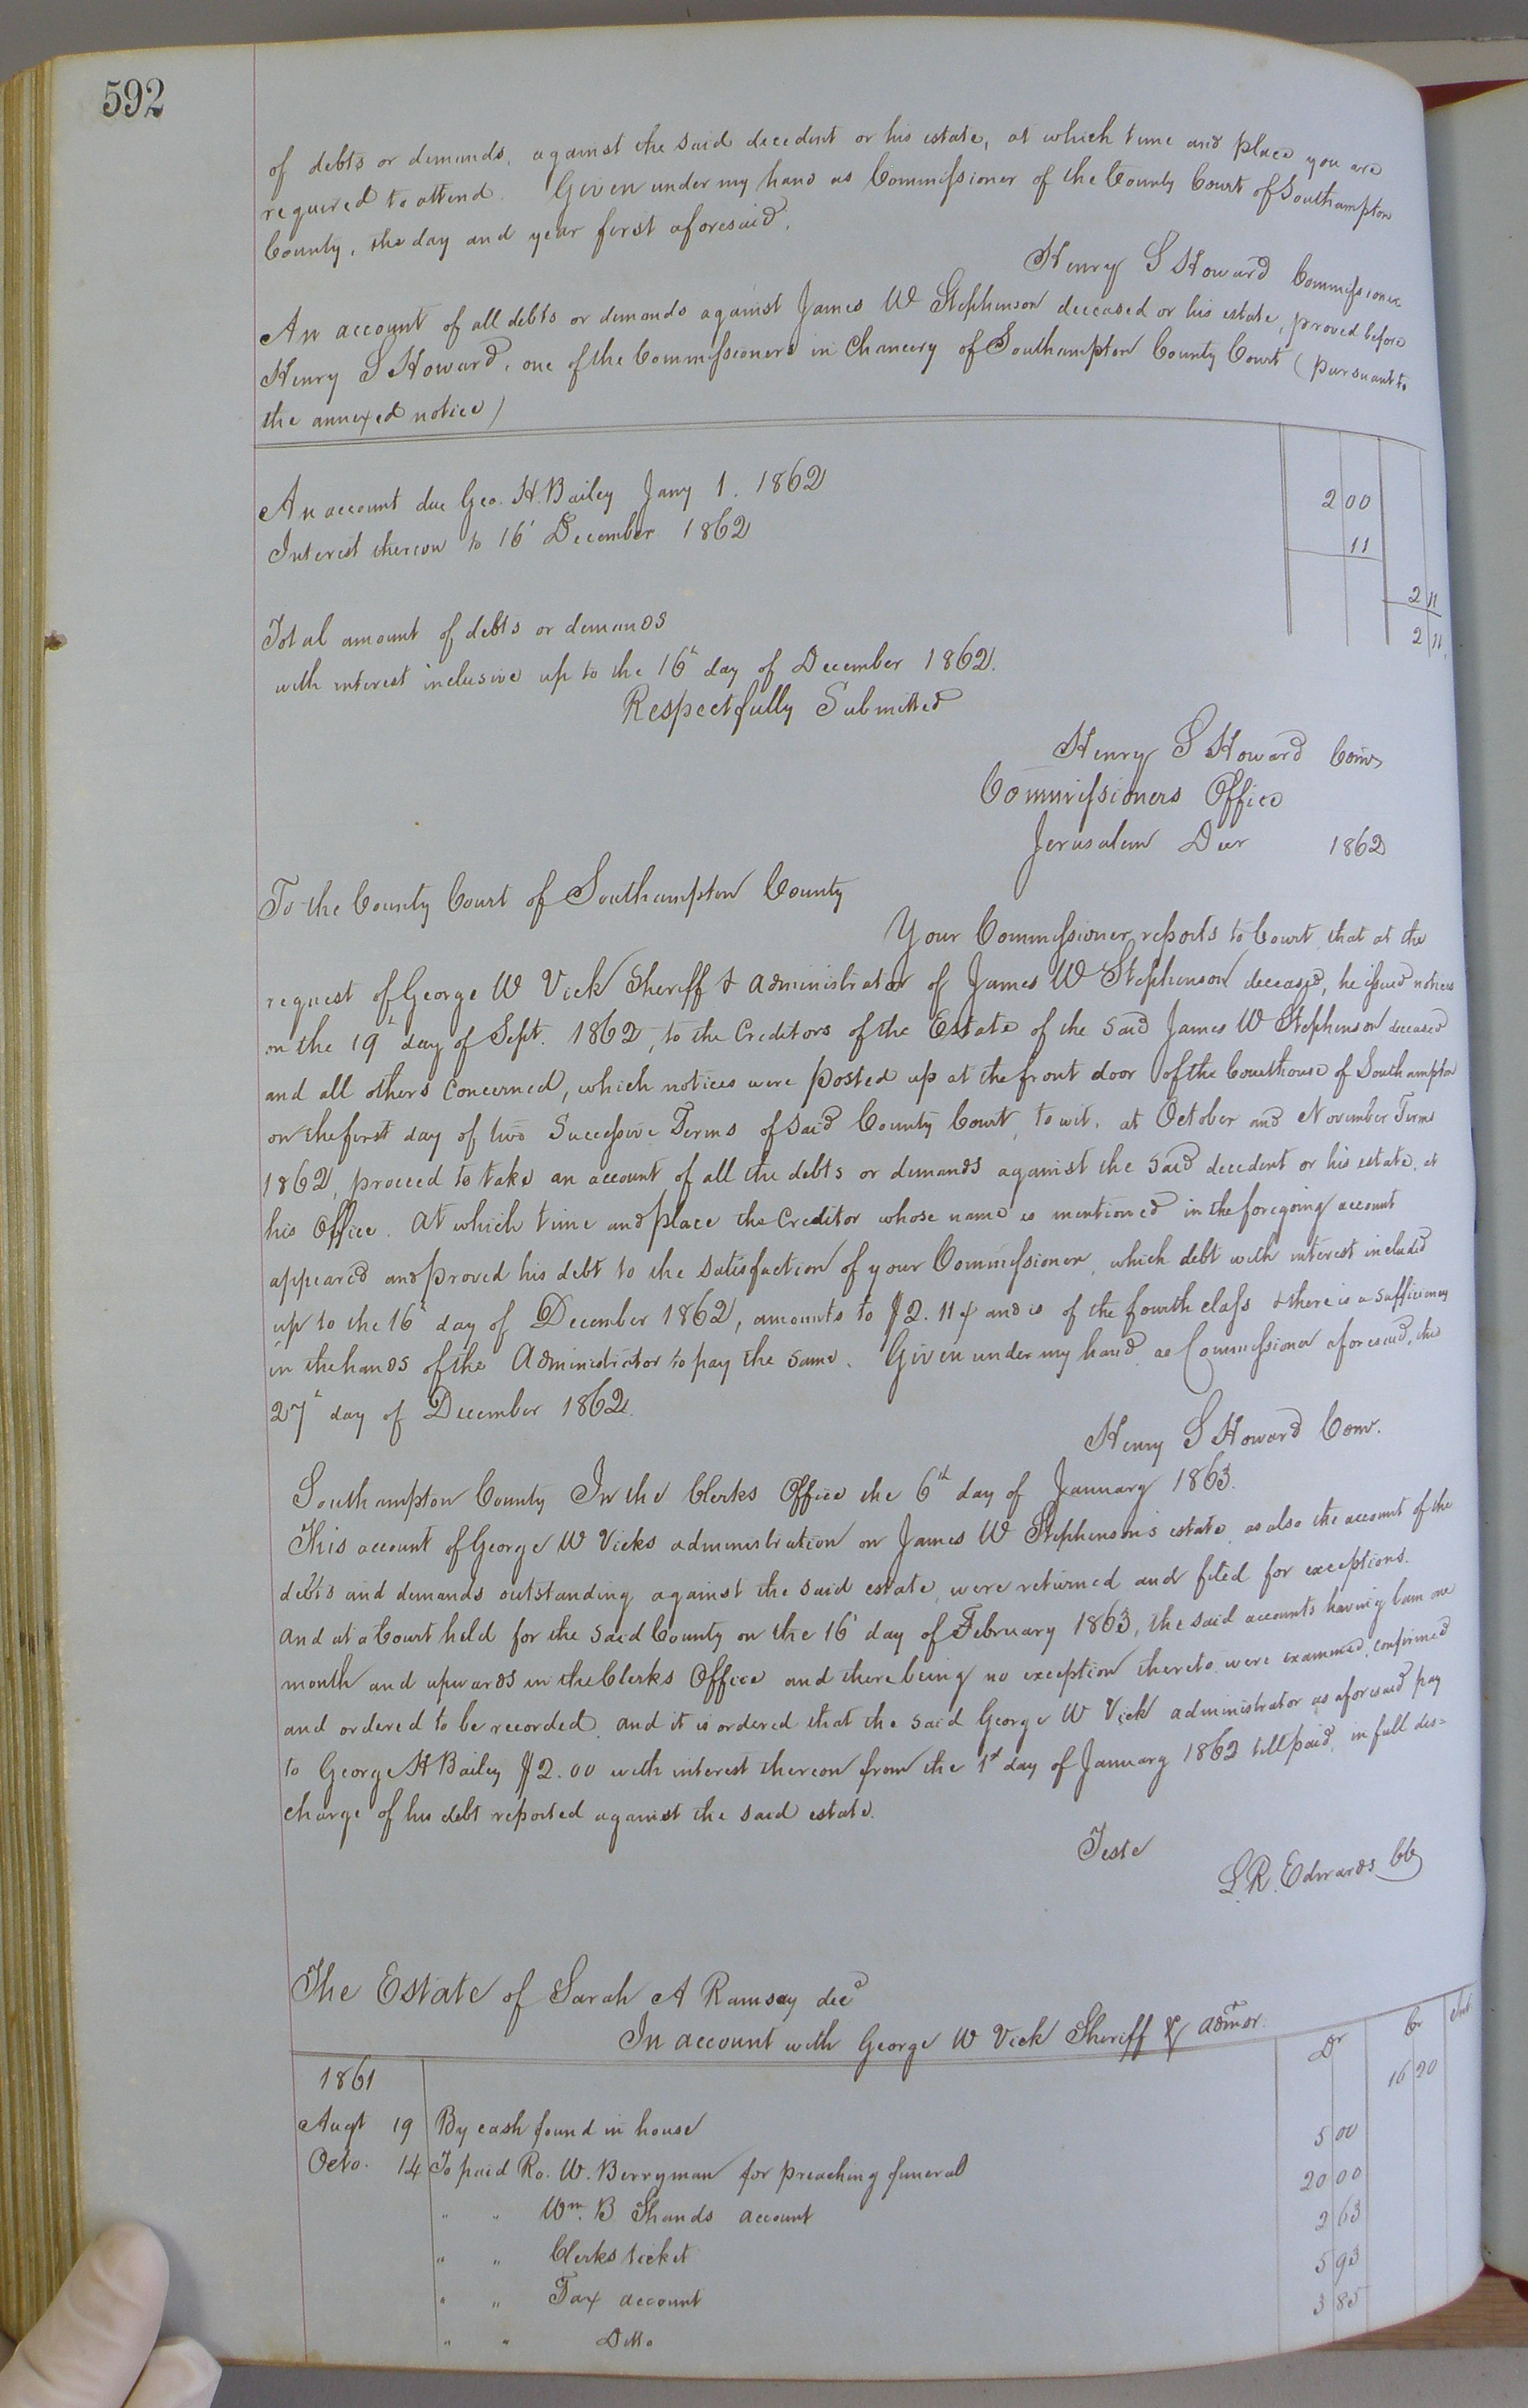 592
of debts or demands, against the said decedent or his estate, at which time and place you are
required to attend. Given under my hand as Commissioner of the County Court of Southampton
County, the day and year first aforesaid.
Henry S Howard Commissioner
An account of all debts or demands against James W Stephenson deceased or his estate, proved before
Henry S Howard, one of the Commissioners in Chancery of Southampton County Court (pursuant to
the annexed notice)
An account due Geo. H. Bailey Jany 1. 1862 2 00
Interest thereon to 16' December 1862 11
2 11
Total amount of debts or demands 2 11
with interest inclusive up to the 16th day of December 1862.
Respectfully Submitted
Henry S Howard Comr
Commissioners Office
Jerusalem Decr 1862
To the County Court of Southampton County
Your Commissioner reports to Court that at the
request of George W Vick Sheriff & administrator of James W Stephenson deceased, he issued notices
on the 19th day of Sept. 1862, to the Creditors of the Estate of the said James W Stephenson deceased
and all others concerned, which notices were posted up at the front door of the Courthouse of Southampton
on the first day of two Successive Terms of said County Court, to wit, at October and November Terms
1862, proceed to take an account of all the debts or demands against the said decedent or his estate, at
his Office. At which time and place the Creditor whose name is mentioned in the foregoing account
appeared and proved his debt to the satisfaction of your Commissioner, which debt with interest included
up to the 16th day of December 1862, amounts to $2.11 & and is of the fourth class & there is a sufficiency
in the hands of the Administrator to pay the same. Given under my hand as Commissioner aforesaid, this
27th day of December 1862.
Henry S Howard Comr.
Southampton County In the Clerks Office the 6th day of January 1863.
This account of George W Vicks administration on James W Stephenson's estate, as also the account of the
debts and demands outstanding against the said estate, were returned and filed for exceptions.
And at a Court held for the said County on the 16' day of February 1863, the said accounts having lain one
month and upwards in the Clerks Office and there being no exception thereto were examined, confirmed
and ordered to be recorded, and it is ordered that the said George W Vick administrator as aforesaid pay
to George H Bailey $2.00 with interest thereon from the 1st day of January 1862 till paid, in full dis=
charge of his debt reported against the said estate.
Teste
L. R. Edwards CC
The Estate of Sarah A Ramsay decd
In account with George W Vick Sheriff & admor. Dr Cr
1861
Augt 19 By cash found in house 16 20
Octo. 14 To paid Ro. W. Berryman for preaching funeral 5 00
" " Wm. B Shands account 20 00
" " Clerks ticket 2 63
" " Tax account 5 93
" " Ditto 3 85